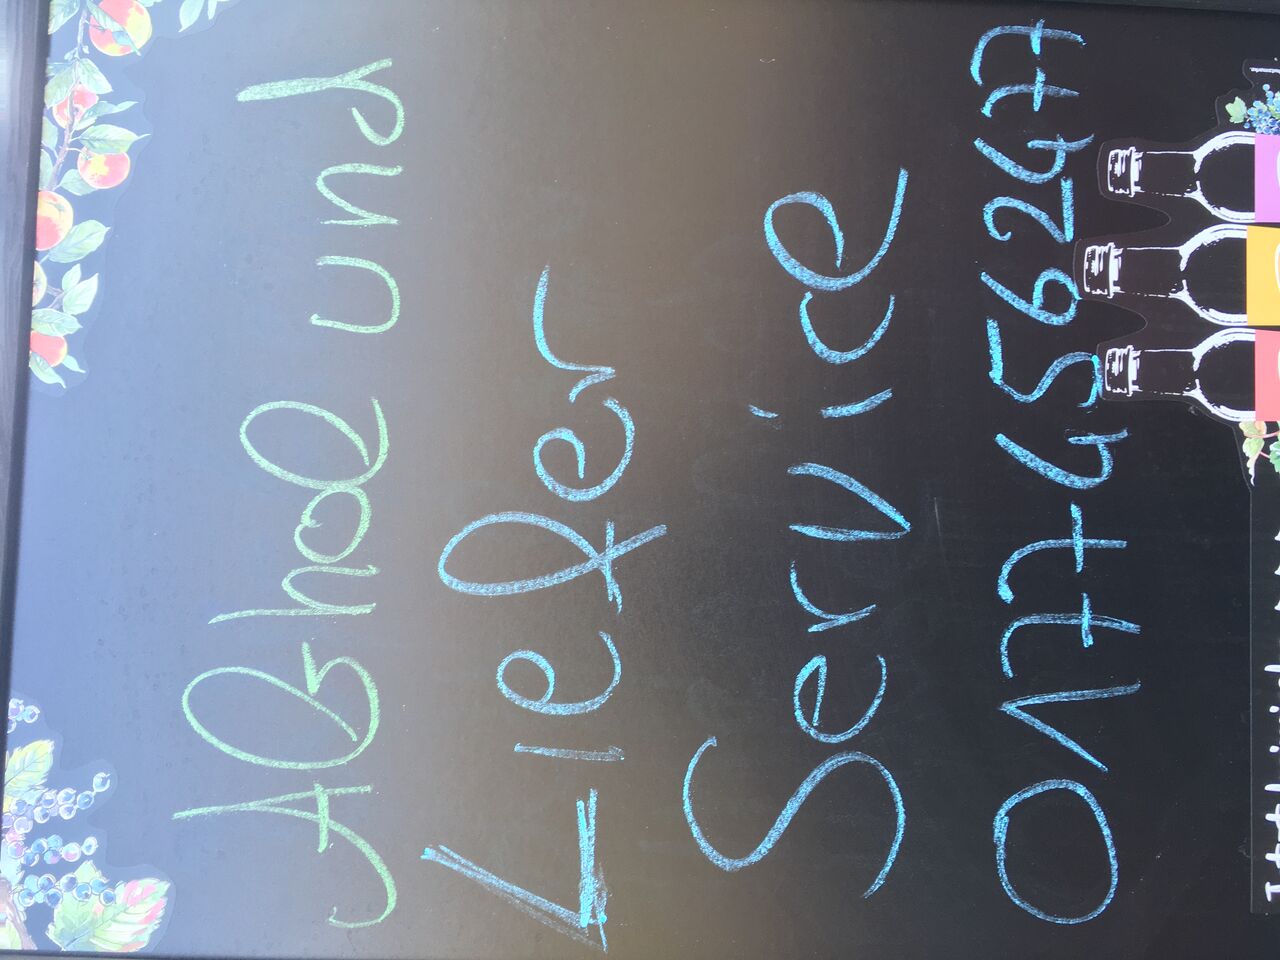 Abhol und
Liefer
Service
01774562477